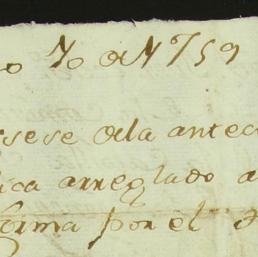 o 7o de M759
sese dela antec
ica arreglado a
forma por el